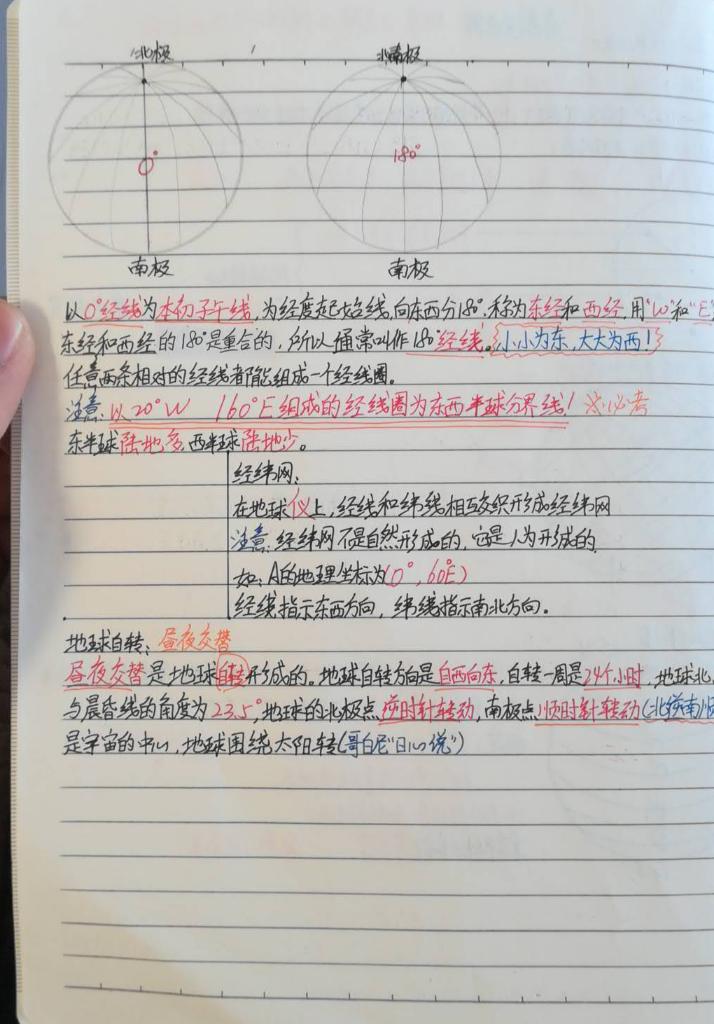 北极
北南极
0°
180°
南极
南极
以0°经线为本初子午线,为经度起始线,向东西分180°,称为东经和西经,用"W"和"E"
东经和西经的180°是重合的,所以通常叫作180°经线。小小为东,大大为西!
任意两条相对的经线都能组成一个经线圈。
注意:以20°W 160°E组成的经线圈为东西半球分界线! ※必考
东半球陆地多,西半球陆地少。
经纬网:
在地球仪上,经线和纬线相互交织形成经纬网
注意:经纬网不是自然形成的,它是人为形成的
如:A的地理坐标为(0°,60°E)
经线指示东西方向,纬线指示南北方向。
地球自转:昼夜交替
昼夜交替是地球自转形成的。地球自转方向是自西向东,自转一周是24个小时,地球北
与晨昏线的角度为23.5°,地球的北极点逆时针转动,南极点顺时针转动(北逆南顺
是宇宙的中心,地球围绕太阳转(哥白尼"日心说")